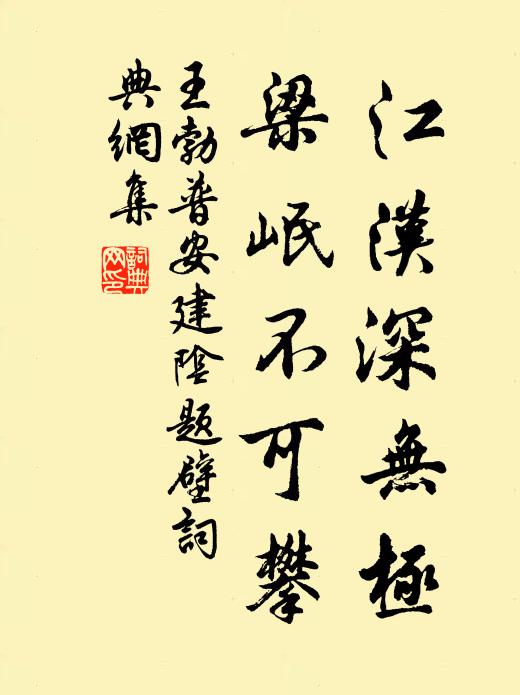 江漢深無極
梁岷不可攀
王勃普安建陰題壁詞
典網集
詞典
网印